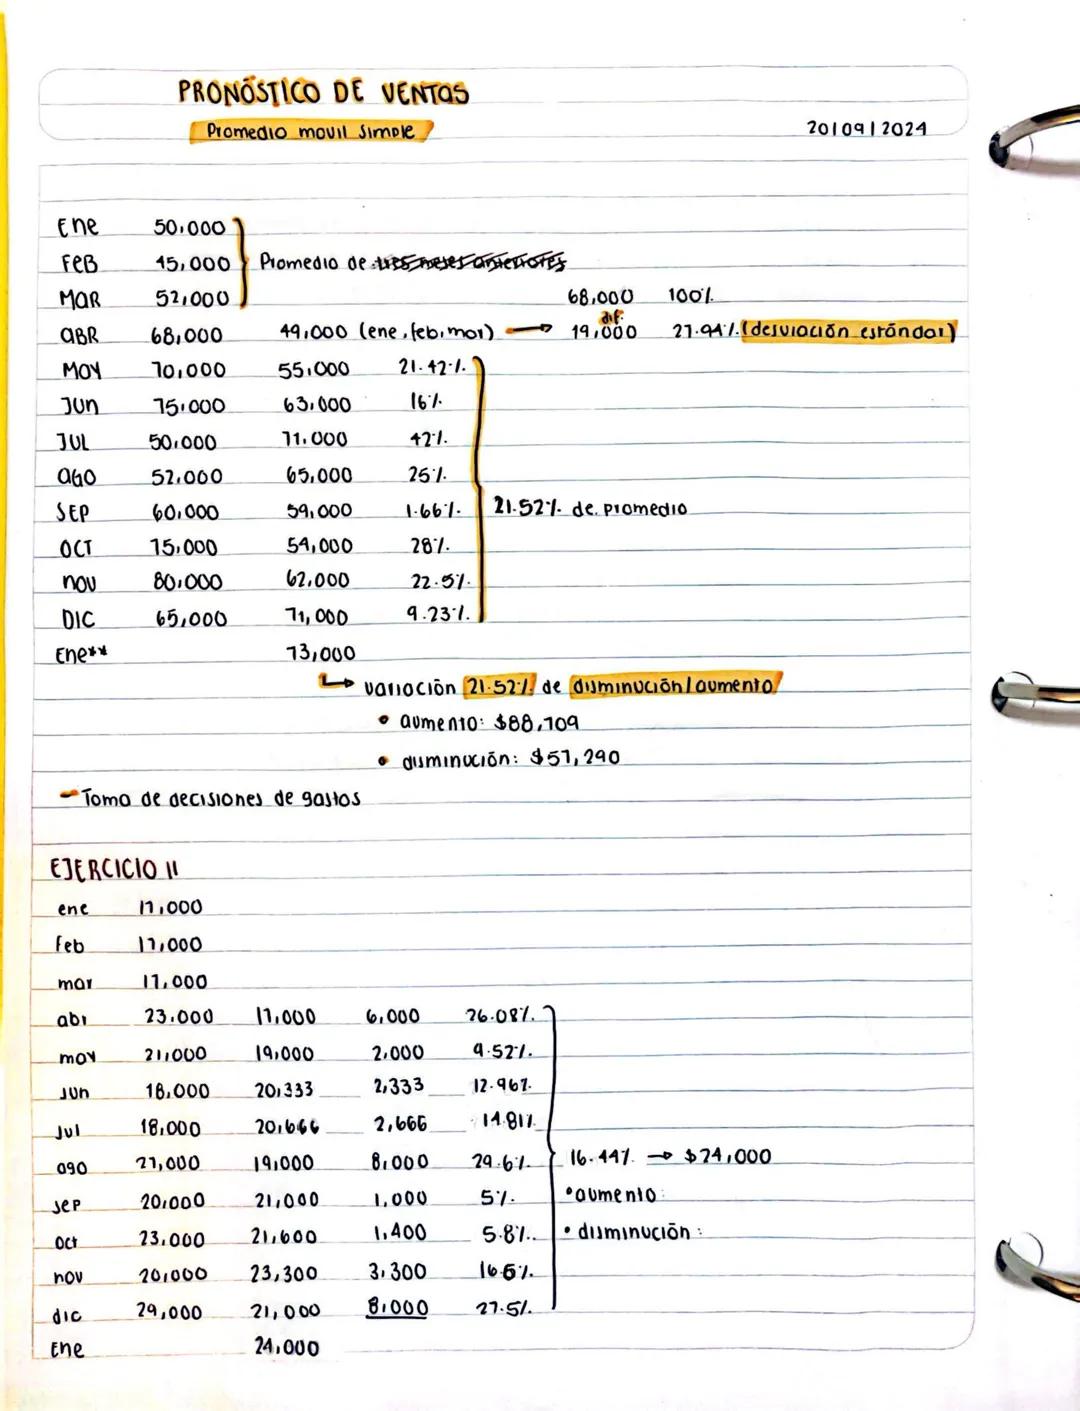 PRONÓSTICO DE VENTAS
Promedio movil simple
20/09/2024
Ene 50,000
FEB 45,000 Promedio de tres meses anteriores
MAR 52,000 68,000 100%
ABR 68,000 49,000 (ene, feb, mar) → dif. 19,000 27.94% (desviación estándar)
MAY 70,000 55,000 21.42%
JUN 75,000 63,000 16%
JUL 50,000 71,000 42%
AGO 52,000 65,000 25%
SEP 60,000 59,000 1.66% 21.52% de promedio
OCT 75,000 54,000 28%
NOV 80,000 62,000 22.5%
DIC 65,000 71,000 9.23%
Ene** 73,000
↳ variación 21.52% de disminución/aumento
• aumento: $88,709
• disminución: $57,290
- Toma de decisiones de gastos
EJERCICIO 11
ene 17,000
feb 17,000
mar 17,000
abr 23,000 17,000 6,000 26.08%
may 21,000 19,000 2,000 9.52%
jun 18,000 20,333 2,333 12.96%
jul 18,000 20,666 2,666 14.81%
ago 27,000 19,000 8,000 29.6% 16.44% → $24,000
sep 20,000 21,000 1,000 5% • aumento:
oct 23,000 21,600 1,400 5.8% • disminución:
nov 20,000 23,300 3,300 16.5%
dic 29,000 21,000 8,000 27.5%
Ene 24,000